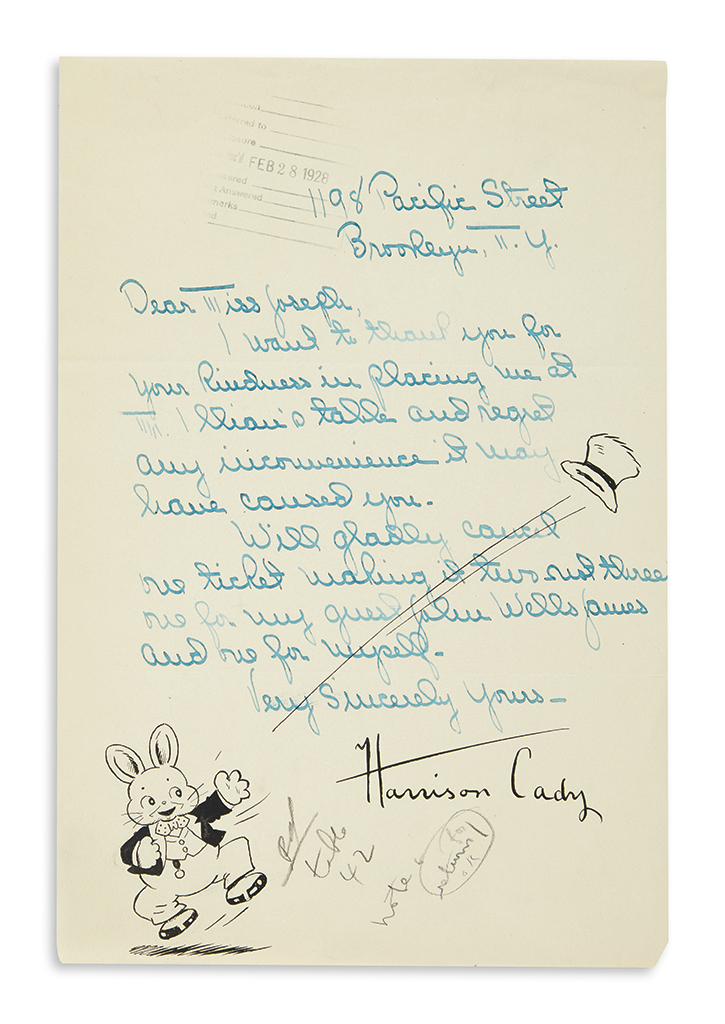 FEB 28 1928
Answered
1198 Pacific Street
Brooklyn, N. Y.
Dear Miss Joseph,
I want to thank you for
your kindness in placing me at
Mr. table and regret
any inconvenience it may
have caused you.
Will gladly cancel
one ticket making it two not three
one for my guest John Wells James
and one for myself-
Very Sincerely Yours-
Harrison Cady
table
42
note